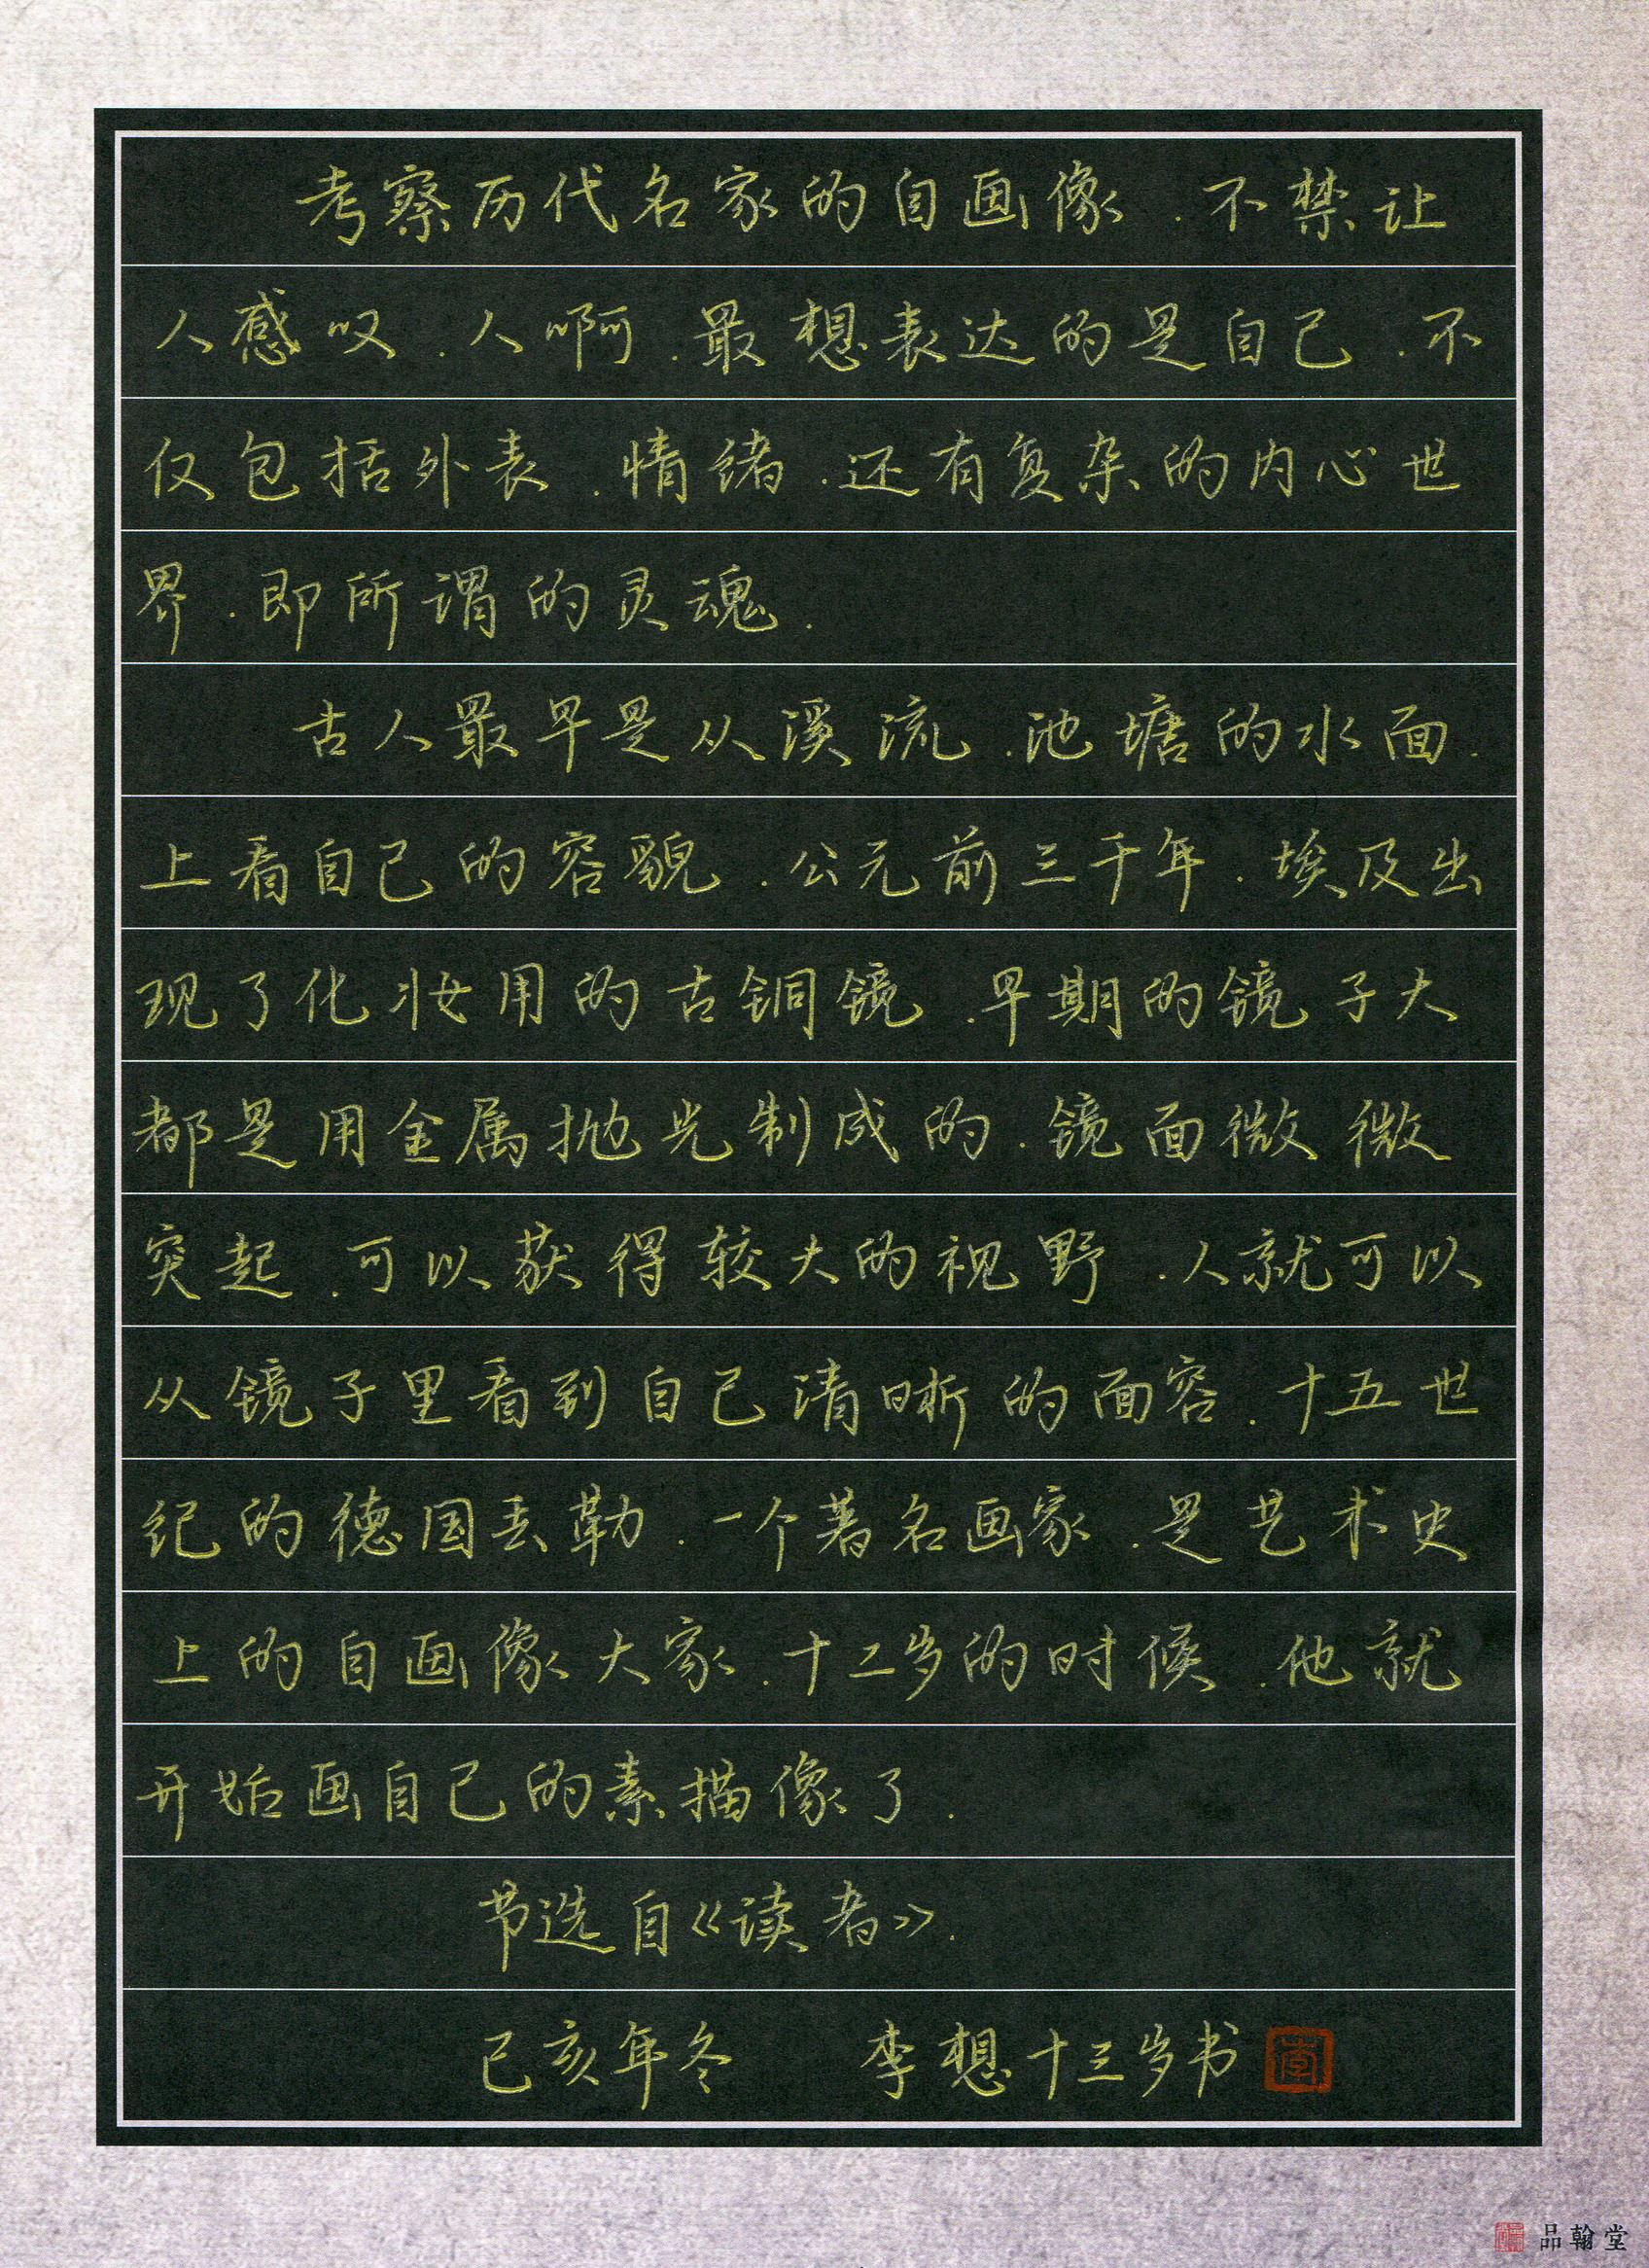 考察历代名家的自画像.不禁让
人感叹.人啊.最想表达的是自己.不
仅包括外表.情绪.还有复杂的内心世
界.即所谓的灵魂.
古人最早是从溪流.池塘的水面.
上看自己的容貌.公元前三千年.埃及出
现了化妆用的古铜镜.早期的镜子大
都是用金属抛光制成的.镜面微微
突起.可以获得较大的视野.人就可以
从镜子里看到自己清晰的面容.十五世
纪的德国丢勒.一个著名画家.是艺术史
上的自画像大家.十二岁的时候.他就
开始画自己的素描像了.
节选自《读者》.
己亥年冬 李想十三岁书 李
品翰堂